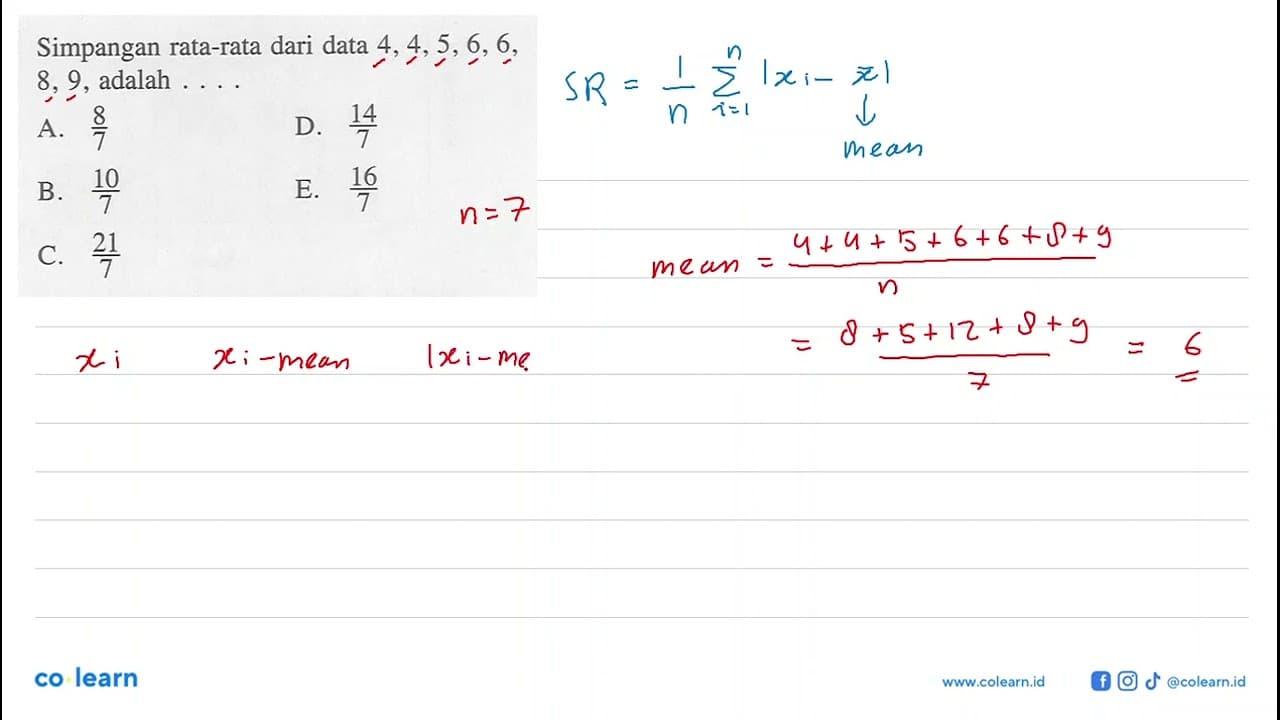 Simpangan rata-rata dari data 4, 4, 5, 6, 6,
8, 9, adalah . . . .
A. 8/7
D. 14/7
B. 10/7
E. 16/7
C. 21/7
n = 7
SR = 1/n n Σ i=1 |xi - x̄|
↓
mean
mean = 4+4+5+6+6+8+9 / n
= 8+5+12+8+9 / 7 = 6
xi xi-mean |xi-me
co learn
www.colearn.id @colearn.id